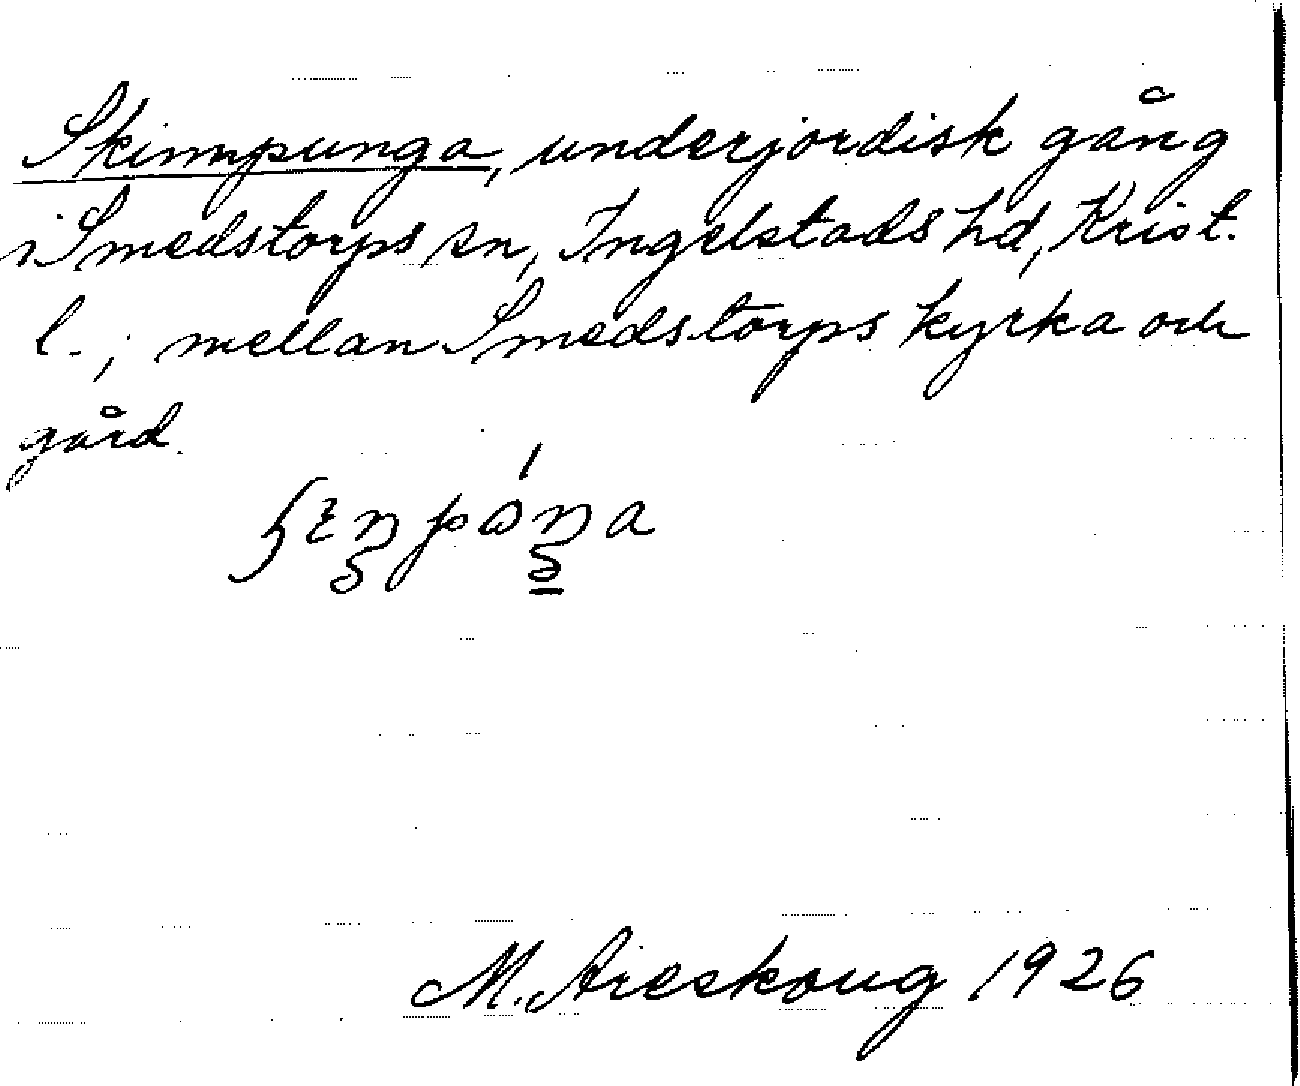 Skinnpunga, underjordisk gång
i Smedstorps sn, Ingelstads hd, Krist.
l.; mellan Smedstorps kyrka och
gård.
M. Areskoug 1926